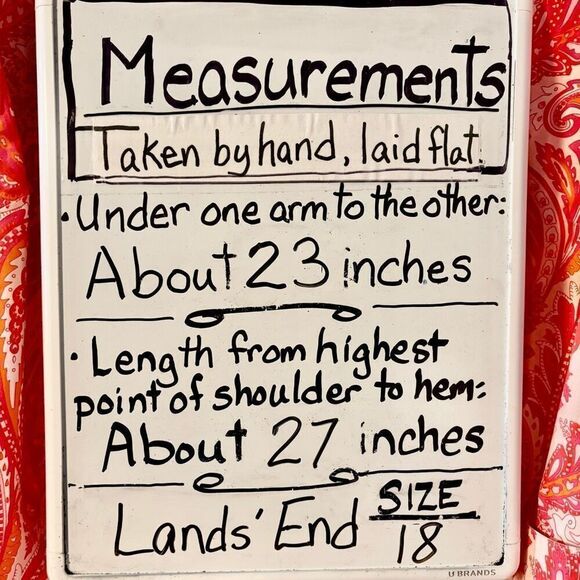 Measurements
Taken by hand, laid flat.
• Under one arm to the other:
About 23 inches
• Length from highest
point of shoulder to hem:
About 27 inches
Lands' End SIZE
18
U BRANDS